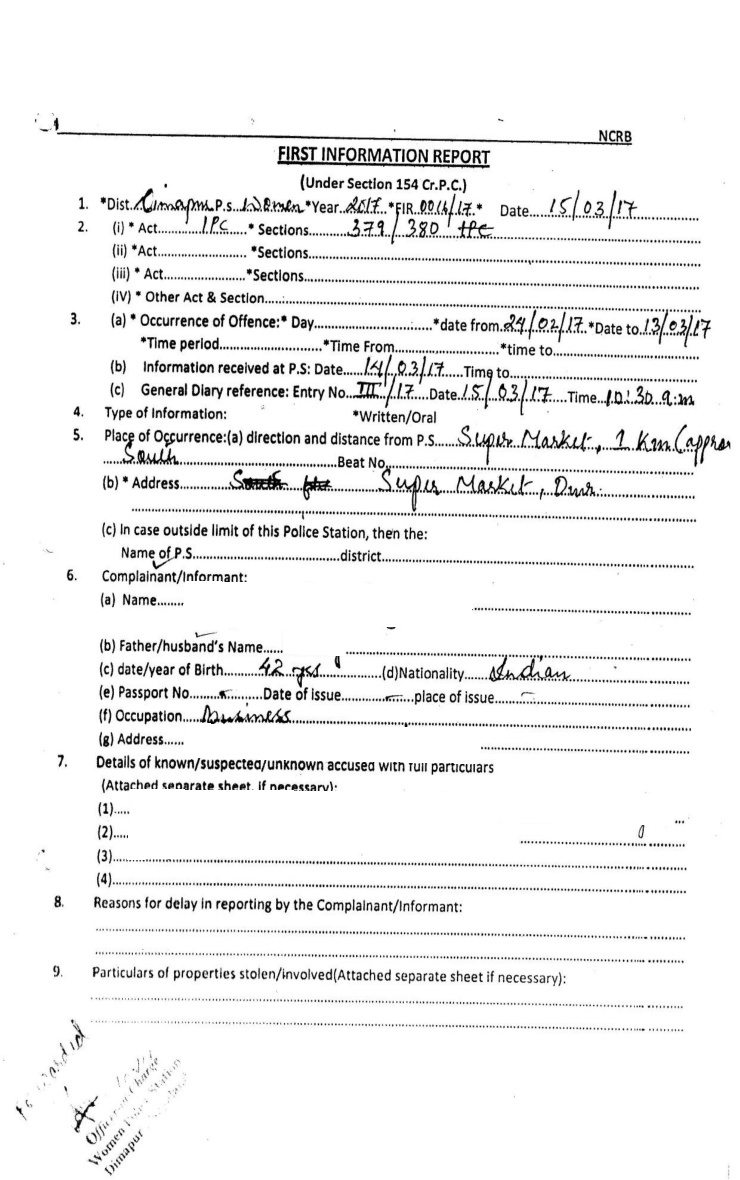 NCRB
FIRST INFORMATION REPORT
(Under Section 154 Cr.P.C.)
1. *Dist. Dimapur P.s. Women *Year 2017 *FIR 0016/17 * Date....15/03/17
2. (i) * Act.........IPC....* Sections..........379/380 IPC
(ii) *Act...................... *Sections
(iii) * Act......................*Sections
(iV) * Other Act & Section
3. (a) * Occurrence of Offence:* Day..............................*date from 24/02/17 *Date to 13/03/17
*Time period..........................*Time From..........................*time to
(b) Information received at P.S: Date......14/03/17.....Time to
(c) General Diary reference: Entry No. III/17 Date 15/03/17 Time 10:30 a:m
4. Type of Information: *Written/Oral
5. Place of Occurrence:(a) direction and distance from P.S..... Super Market, 1 Km (approx
South..............................Beat No.
(b) * Address.......... South Super Market, Dmr.
(c) In case outside limit of this Police Station, then the:
Name of P.S......................................district
6. Complainant/Informant:
(a) Name........
(b) Father/husband's Name......
(c) date/year of Birth.........42 yrs..............(d)Nationality......Indian
(e) Passport No........–.........Date of issue..........–....place of issue.......–
(f) Occupation.....Business
(g) Address......
7. Details of known/suspected/unknown accused with full particulars
(Attached separate sheet, if necessary):
(1).....
(2).....
(3)
(4)
8. Reasons for delay in reporting by the Complainant/Informant:
9. Particulars of properties stolen/involved(Attached separate sheet if necessary):
Forwarded
Officer in Charge
Women Police Station
Dimapur